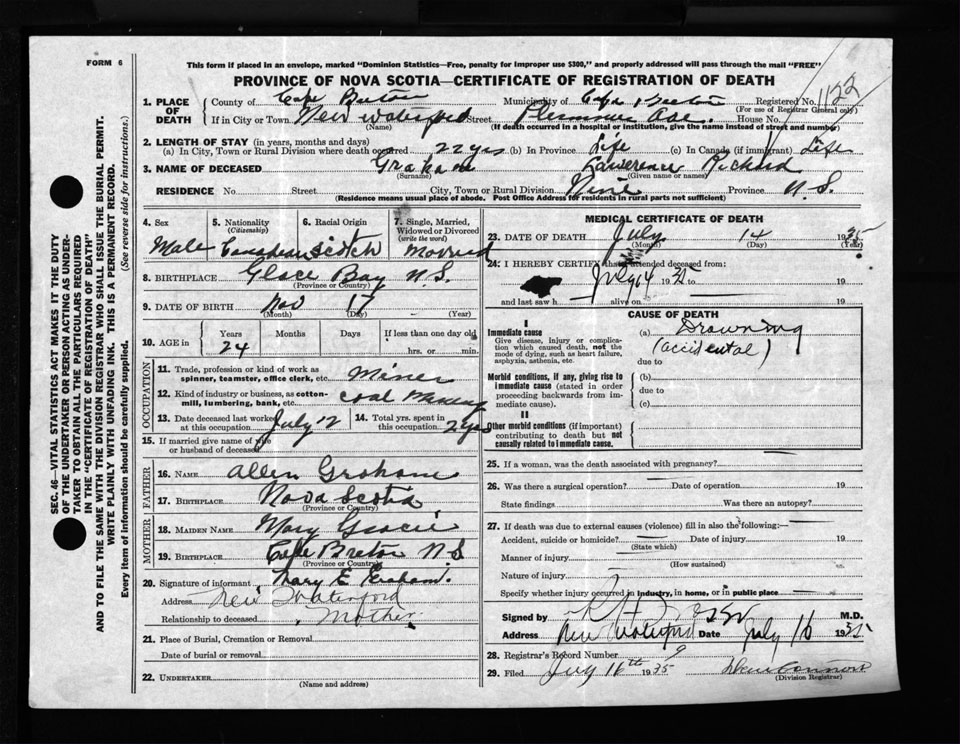 FORM 6
This form if placed in an envelope, marked "Dominion Statistics—Free, penalty for improper use $300," and properly addressed will pass through the mail "FREE"
PROVINCE OF NOVA SCOTIA—CERTIFICATE OF REGISTRATION OF DEATH
1. PLACE OF DEATH County of Cape Breton Municipality of Cape Breton Registered No. 1122
(For use of Registrar General only)
If in City or Town New Waterford Street Plummer Ave. House No.
(Name) (If death occurred in a hospital or institution, give the name instead of street and number)
2. LENGTH OF STAY (in years, months and days)
(a) In City, Town or Rural Division where death occurred 22 yrs (b) In Province Life (c) In Canada (if immigrant) Life
3. NAME OF DECEASED Graham Lawerence Richard
(Surname) (Given name or names)
RESIDENCE No. Street City, Town or Rural Division Province N.S.
(Residence means usual place of abode. Post Office Address for residents in rural parts not sufficient)
4. Sex Male
5. Nationality (Citizenship) Canadian
6. Racial Origin Scotch
7. Single, Married, Widowed or Divorced (write the word) Married
8. BIRTHPLACE Glace Bay N.S.
(Province or Country)
9. DATE OF BIRTH Nov 17
(Month) (Day) (Year)
10. AGE in Years 24 Months Days If less than one day old hrs. or min.
OCCUPATION
11. Trade, profession or kind of work as spinner, teamster, office clerk, etc. Miner
12. Kind of industry or business, as cotton-mill, lumbering, bank, etc. Coal Mining
13. Date deceased last worked at this occupation July 12
14. Total yrs. spent in this occupation 2 yrs
15. If married give name of wife or husband of deceased
FATHER
16. NAME Allen Graham
17. BIRTHPLACE Nova Scotia
(Province or Country)
MOTHER
18. MAIDEN NAME Mary Gracie
19. BIRTHPLACE Cape Breton N S
(Province or Country)
20. Signature of informant Mary E. Graham.
Address New Waterford
Relationship to deceased Mother
21. Place of Burial, Cremation or Removal
Date of burial or removal
22. UNDERTAKER
(Name and address)
MEDICAL CERTIFICATE OF DEATH
23. DATE OF DEATH July 14 1935
(Month) (Day) (Year)
24. I HEREBY CERTIFY that I attended deceased from:
July 14 1935 to 19
and last saw h alive on 19
CAUSE OF DEATH
I
Immediate cause
Give disease, injury or complication which caused death, not the mode of dying, such as heart failure, asphyxia, asthenia, etc.
(a) Drowning
(accidental)
due to
Morbid conditions, if any, giving rise to immediate cause (stated in order proceeding backwards from immediate cause).
(b)
due to
(c)
II
Other morbid conditions (if important) contributing to death but not causally related to immediate cause.
25. If a woman, was the death associated with pregnancy?
26. Was there a surgical operation? Date of operation 19
State findings Was there an autopsy?
27. If death was due to external causes (violence) fill in also the following:
Accident, suicide or homicide? Date of injury 19
(State which)
Manner of injury
(How sustained)
Nature of injury
Specify whether injury occurred in industry, in home, or in public place
Signed by M.D.
Address New Waterford Date July 16 1935
28. Registrar's Record Number 9
29. Filed July 16th 1935
(Division Registrar)
SEC. 46—VITAL STATISTICS ACT MAKES IT THE DUTY
OF THE UNDERTAKER OR PERSON ACTING AS UNDER-
TAKER TO OBTAIN ALL THE PARTICULARS REQUIRED
IN THE "CERTIFICATE OF REGISTRATION OF DEATH"
AND TO FILE THE SAME WITH THE DIVISION REGISTRAR WHO SHALL ISSUE THE BURIAL PERMIT.
WRITE PLAINLY WITH UNFADING INK. THIS IS A PERMANENT RECORD.
Every item of information should be carefully supplied. (See reverse side for instructions.)